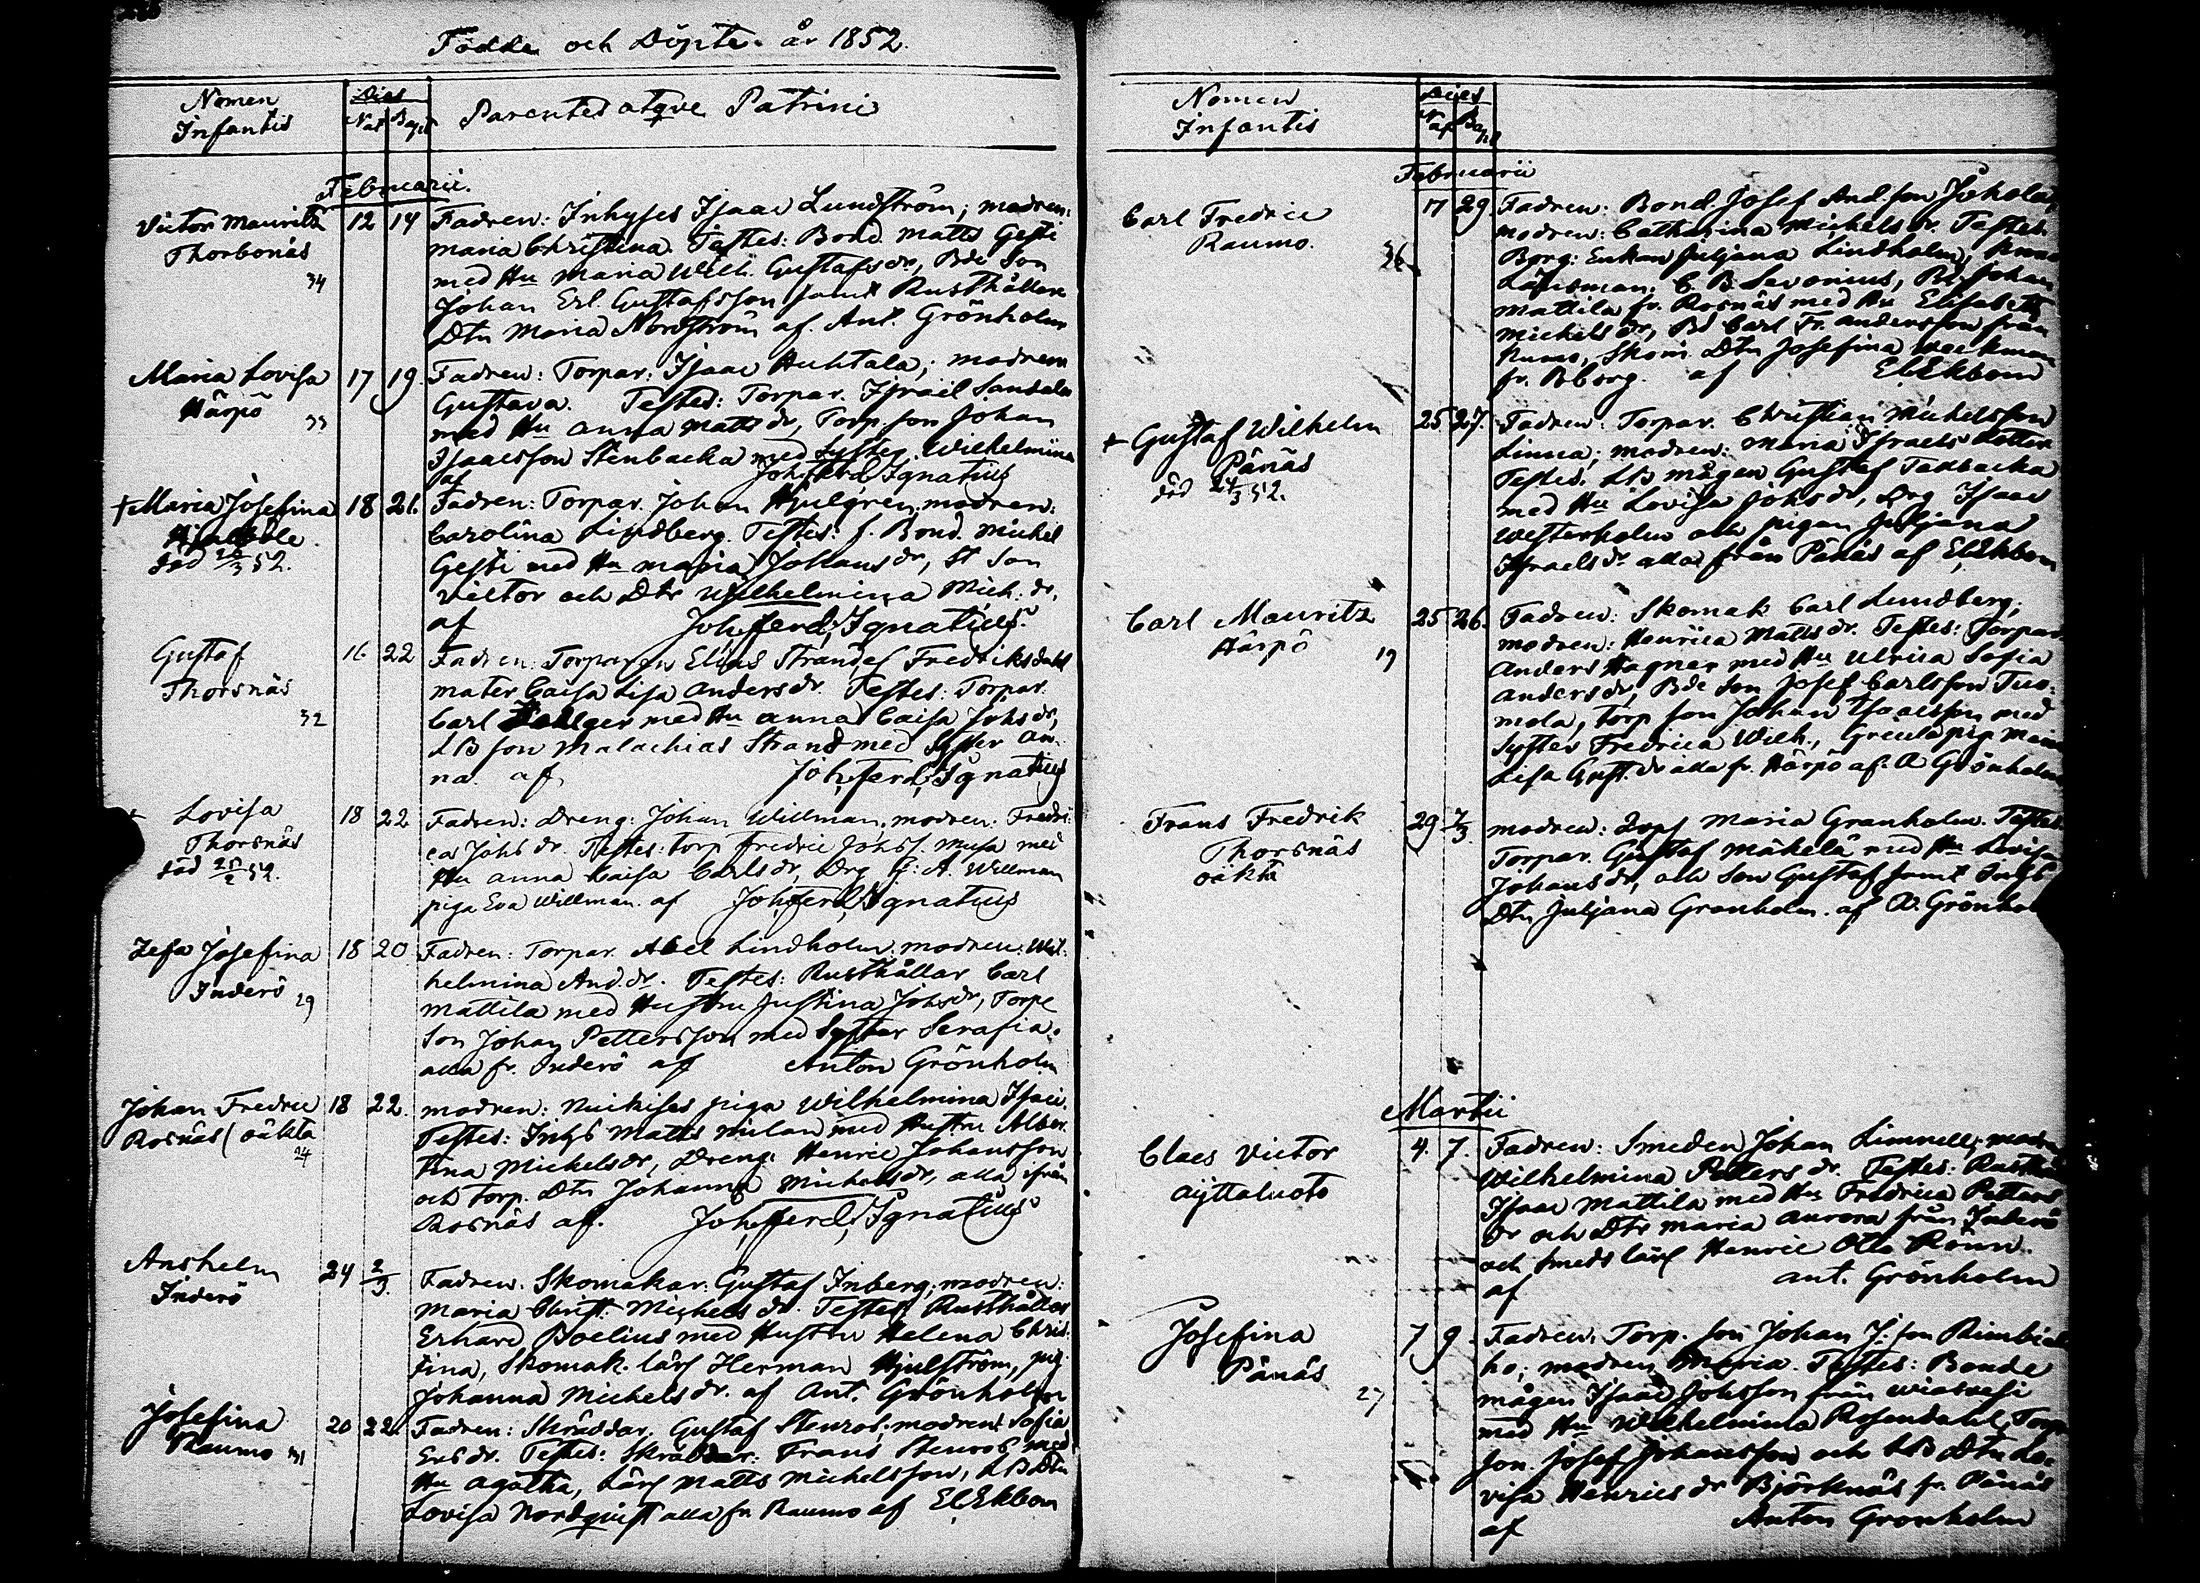 Födde och Döpte år 1852.
Nomen
Infantis
Dies
Nat Bapt
Parentes atqve Patrini
Februarii.
Victor Mauritz
Thorbonäs
34
12 14
Fadren: Inhyses Isaac Lundström; modren:
Maria Christina. Testes: Bond. Matts Gesti
med Hu Maria Wilh. Gustafsdr, Bde Son
Johan Erl. Gustafsson samt Rusthållare
Dtn Maria Nordström af. Ant. Grönholm
Maria Lovisa
Härpö
33
17 19
Fadren: Torpar. Isaac Huhtala; modren
Gustava. Testes: Torpar. Israël Sandala
med Hu Anna Mattsdr, Torp. son Johan
Isaacsson Stenbacka med Syster Wilhelmina
af Joh. Ferd. Ignatius
+ Maria Josefina
död 26/3 52.
18 21.
Fadren: Torpar. Johan Hjulgren, modren:
Carolina Lindberg. Testes: f. Bond. Michel
Gesti med Hu Maria Johansdr, St Son
Victor och Dtr Wilhelmina Mich. dr.
af Joh. Ferd. Ignatius.
Gustaf
Thorsnäs
32
16 22
Fadren: Torparen Elias Strandel Fredriksdahl
mater Caisa Lisa Andersdr. Testes: Torpar.
Carl med Hu Anna Caisa Johsdr,
LB son Malachias Strand med Syster An-
na. af Joh. Ferd. Ignatius
+ Lovisa
Thorsnäs
död 25/2 52.
18 22
Fadren: Dreng: Johan Willman, modren: Fredri-
ca Johs dr. Testes: torp Fredric Johss. Musa med
Hu Anna Caisa Carlsdr, Drg G. A. Willman
piga Eva Willman. af Joh. Ferd. Ignatius
Zefa Josefina
Inderö
29
18 20
Fadren: Torpar. Abel Lindholm, modren: Wil-
helmina And. dr. Testes: Rusthållar Carl
Mattila med Hustru Justina Johsdr, Torpe
Son Johan Pettersson med Syster Serafia.
alla fr. Inderö af Anton Grönholm
Johan Fredric
Rosnäs (oäkta
24
18 22.
modren: piga Wilhelmina Isaci.
Testes: Inhs Matts Milan med Hustru Alber-
tina Michelsdr, Dreng: Henric Johansson
och torp. Dtn Johanna Michelsdr, alla ifrån
Rosnäs af. Joh. Ferd. Ignatius
Anshelm
Inderö
24 2/3.
Fadren. Skomakar. Gustaf Inberg; modren:
Maria Christ. Michels dr. Testes Rusthållar
Erhard Boelius med Hustru Helena Chris-
tina, Skomak. lärl Herman Hjulström, pig.
Johanna Michels dr. af Ant. Grönholm
Josefina
Raumo 31
20 22.
Fadren: Skräddar. Gustaf Stenros; modren: Sofia
Ersdr. Testes: Skräddar. Frans Stenros med
Hu Agatha, Lärl Matts Michelsson, LB Dtn
Lovisa Nordqvist alla fr. Raumo af El Ekbom
Nomen
Infantis
Dies
Nat Bapt
Februarii
Carl Fredric
Raumo.
36
17 29
Fadren: Bond. Josef And. son Juhola,
modren: Catharina Michels dr. Testes
Borg: Enkan Juljana Lindholm,
Länsman. C. B. Sevonius, Bd Johan
Mattila fr. Rosnäs med Hu Elisabeth
Michelsdr, Bd Carl Fr. Andersson från
Rumo, Skom. Dtn Josefina Weckman
fr. Bborg. af El Ekbom
+ Gustaf Wilhelm
Pänäs
död 24/3 52.
25 27.
Fadren: Torpar. Christian Michelsson
Linna; modren: Maria Israels dotter
Testes. LB mågen Gustaf Tadbacka
med Hu Lovisa Johsdr, Drg Isaac
Westerholm och pigan Juljana
Israelsdr alla från Pänäs af El Ekbom
Carl Mauritz
Härpö
19
25 26.
Fadren: Skomak Carl Lundberg;
modren: Henrica Matts dr. Testes: Torpar.
Anders Hagner med Hu Ulrica Sofia
Andersdr, Bde son Josef Carlsson Tuo-
mola, torp son Johan Isaacsson med
Syster Fredrica Wilh., Grels pig Maria
Lisa Gust. dr alla fr. Härpö af. A Grönholm
Frans Fredrik
Thorsnäs
oäkta
29 7/3.
modren: Maria Granholm. Testes
Torpar. Gustaf Mäkelä med Hu Lovisa
Johansdr, och Son Gustaf samt Inhs
Dtn Juljana Granholm. af A. Grönhol
Martii
Claes Victor
Äyttaluoto
4. 7.
Fadren: Smeden Johan Limnell, modren
Wilhelmina Petters dr. Testes: Rusth
Isaac Mattila med Hu Fredrica Petters
dr och Dtr Maria Aurora från Inderö
och smeds lärl Henric Otto Rönn.
af Ant. Grönholm
Josefina
Pänäs
27
7 9
Fadren: Torp. son Johan J. son Rimbi
ho; modren Maria. Testes: Bonde
mågen Isaac Johsson från Wiasvesi
med Hu Wilhelmina Rosendahl, Torp
son. Josef Johansson och LB Dtn Lo-
visa Henrics dr Björknäs fr. Pänäs
af Anton Gronholm